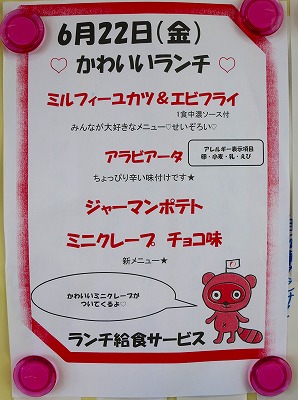 6月22日(金)
♡ かわいいランチ ♡
ミルフィーユカツ&エビフライ
1食中濃ソース付
みんなが大好きなメニュー♡せいぞろい♡
アラビアータ
アレルギー表示項目
卵・小麦・乳・えび
ちょっぴり辛い味付けです★
ジャーマンポテト
ミニクレープ チョコ味
新メニュー★
かわいいミニクレープが
ついてくるよ♡
ランチ給食サービス